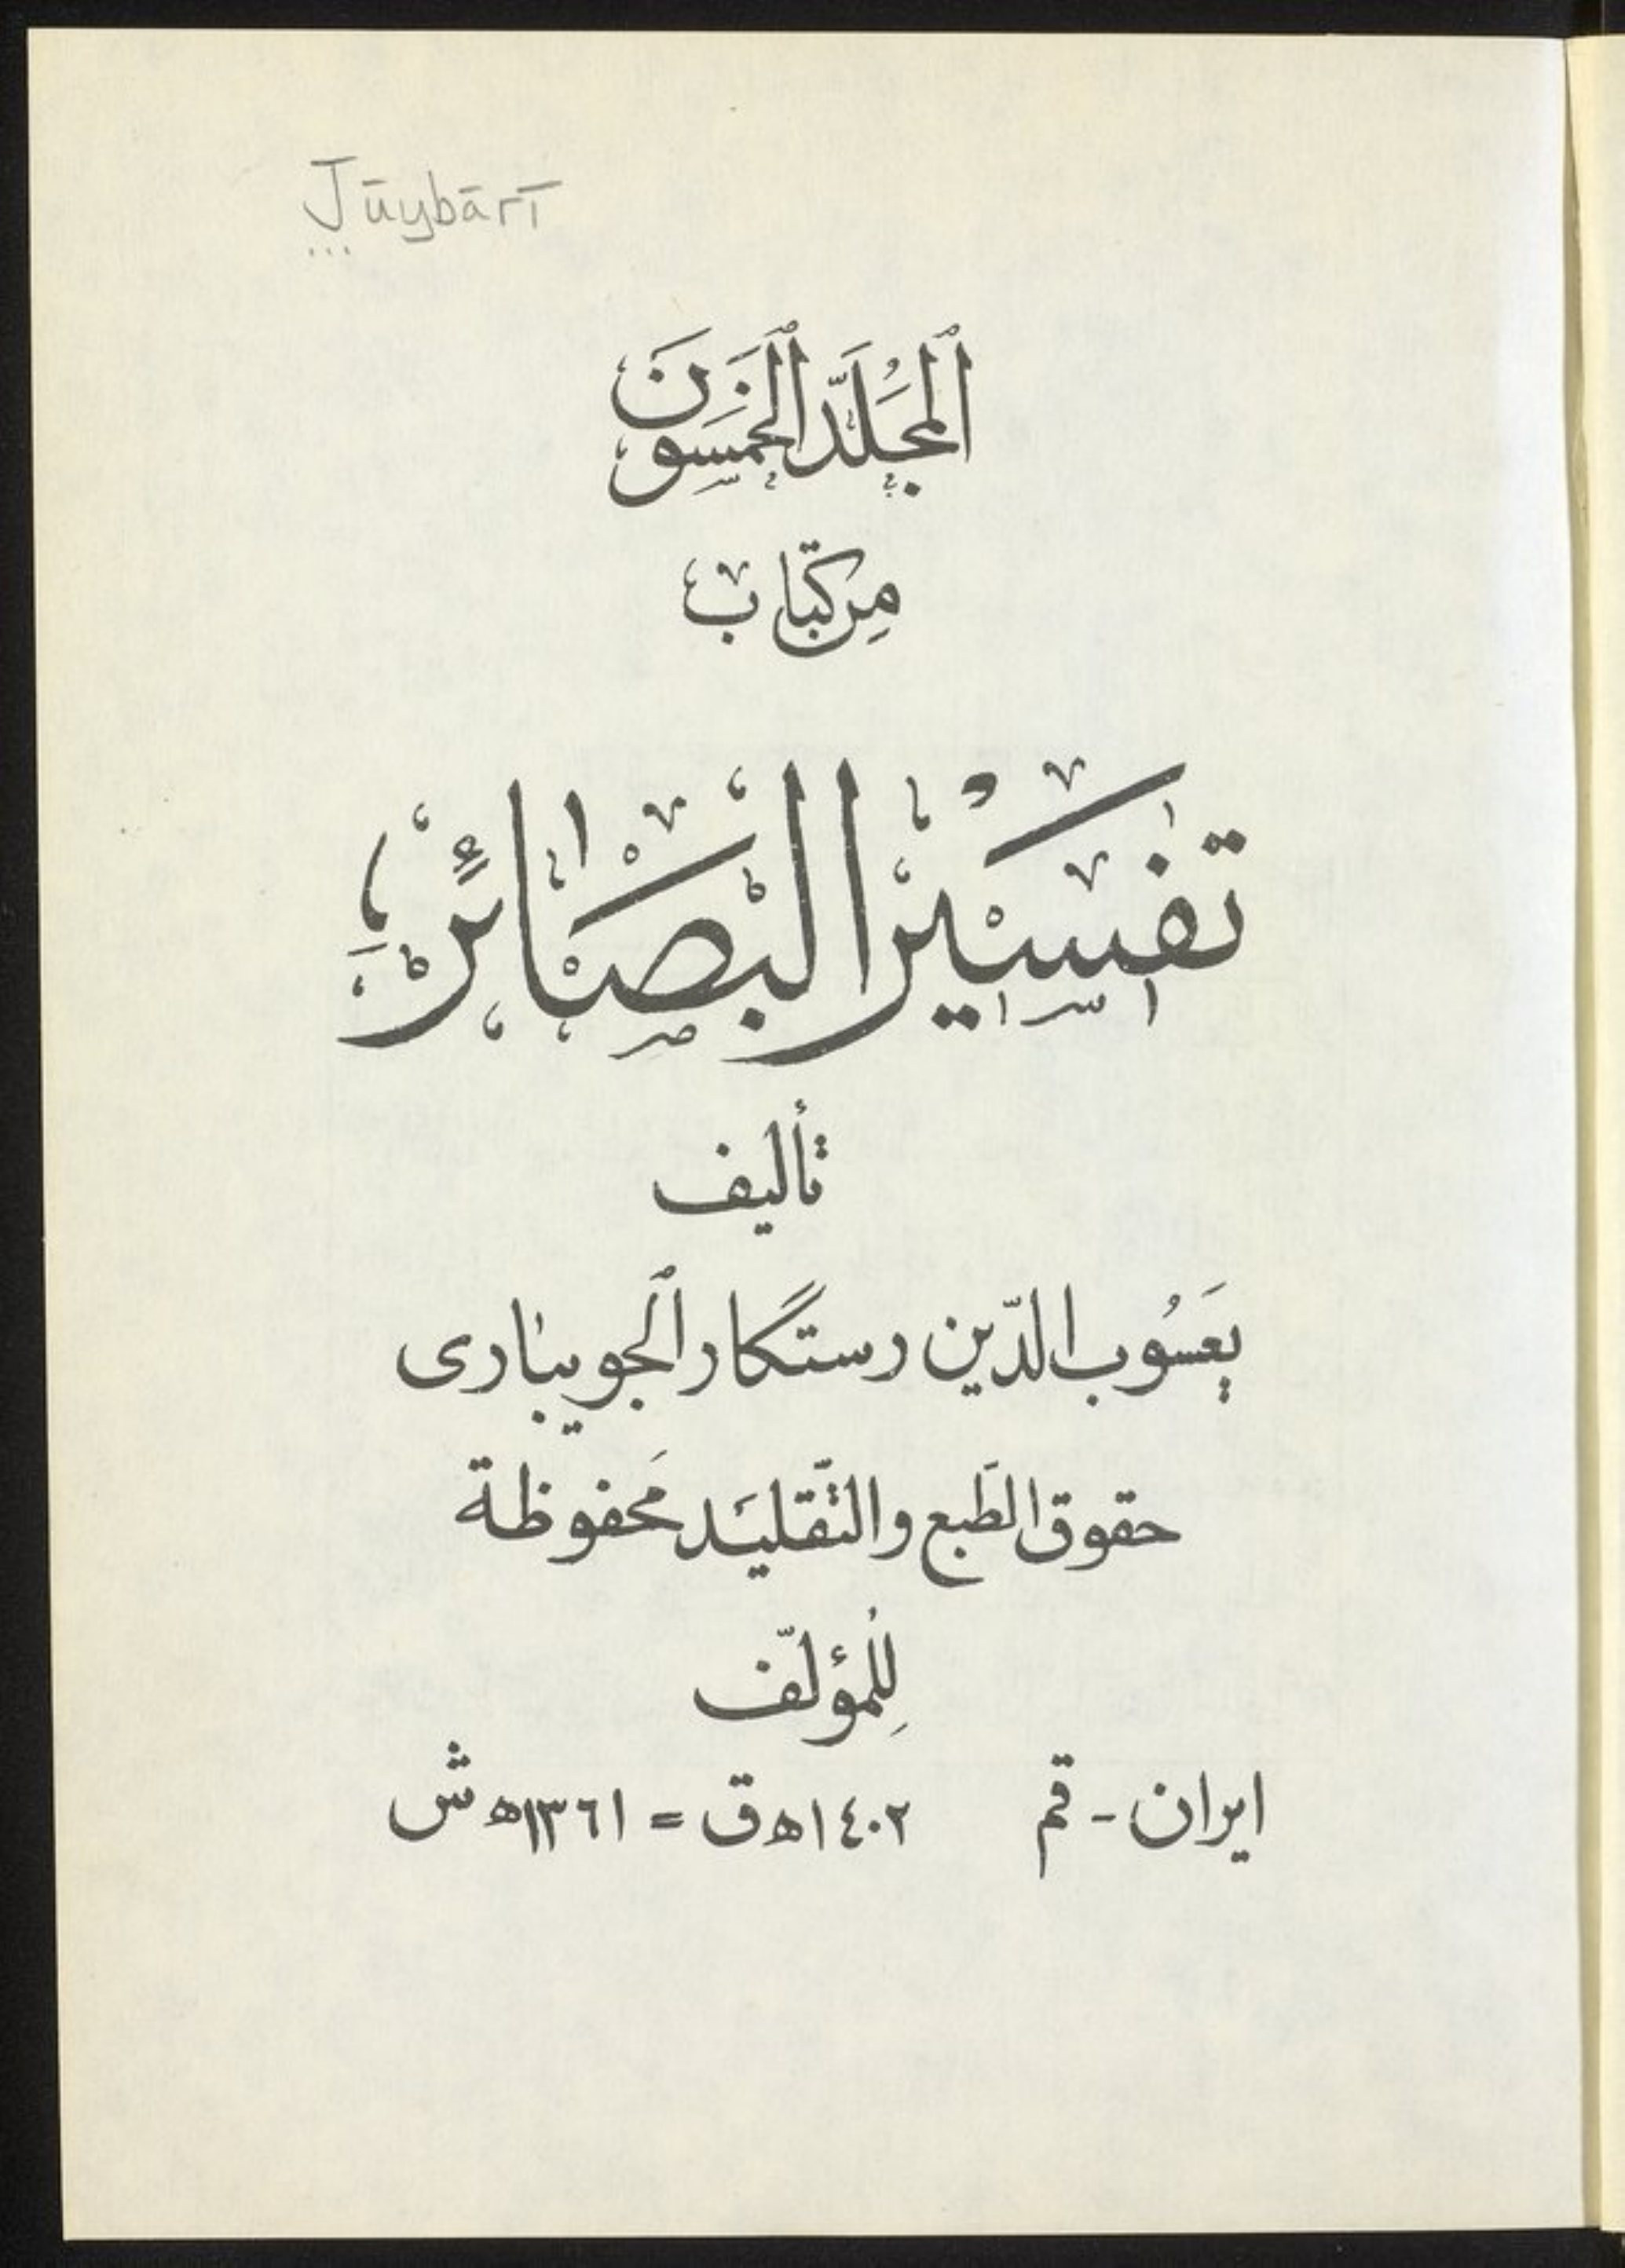 Jūybārī
ٱلمُجَلَّد ٱلخَمسِوُنَ
مِن كتاب
تَفسيرُ البَصَائِرِ
تأليف
يَعسُوب الدّين رستگار ٱلجويبارى
حقوق الطَبع والتّقليَد مَحفوظة
لِلُمؤلّف
ايران - قم ١٤٠٢ه ق = ١٣٦١ه ش